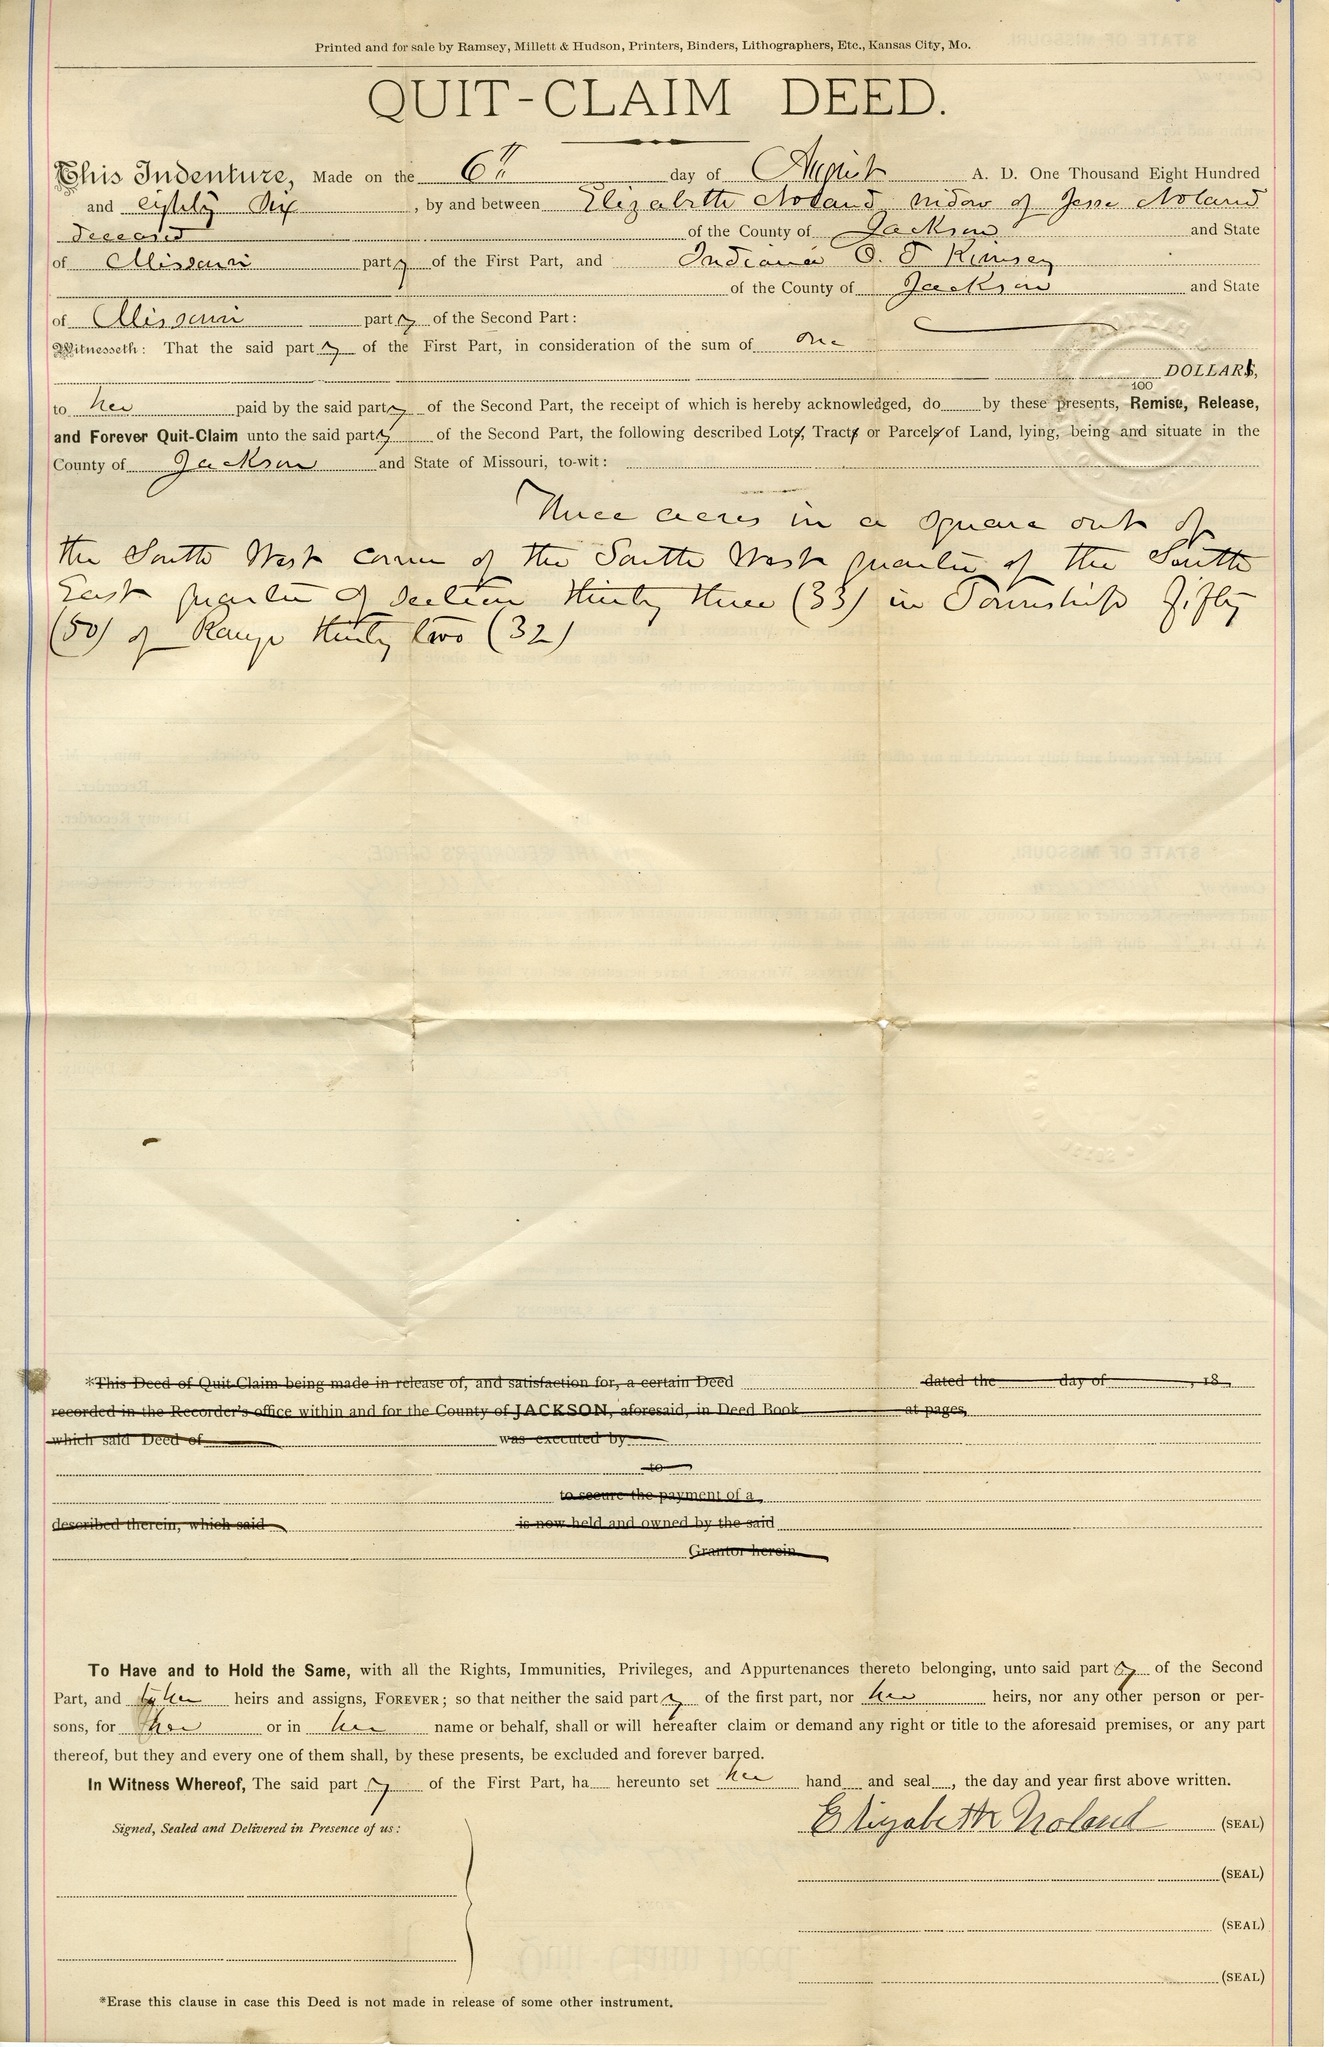 Printed and for sale by Ramsey, Millett & Hudson, Printers, Binders, Lithographers, Etc., Kansas City, Mo.
QUIT-CLAIM DEED.
This Indenture, Made on the 6th day of August A. D. One Thousand Eight Hundred
and eighty six, by and between Elizabeth Noland widow of Jesse Noland
deceased of the County of Jackson and State
of Missouri party of the First Part, and Indiana O. T Kimsey
of the County of Jackson and State
of Missouri party of the Second Part:
Witnesseth: That the said party of the First Part, in consideration of the sum of one
DOLLARS,
100
to her paid by the said party of the Second Part, the receipt of which is hereby acknowledged, do by these presents, Remise, Release,
and Forever Quit-Claim unto the said party of the Second Part, the following described Lots, Tracts or Parcels of Land, lying, being and situate in the
County of Jackson and State of Missouri, to-wit:
Three acres in a square out of
the South West corner of the South West quarter of the South
East quarter of section thirty three (33) in Township fifty
(50) of Range thirty two (32)
*This Deed of Quit-Claim being made in release of, and satisfaction for, a certain Deed dated the day of , 18 ,
recorded in the Recorder's office within and for the County of JACKSON, aforesaid, in Deed Book at pages,
which said Deed of was executed by
to
to secure the payment of a
described therein, which said is now held and owned by the said
Grantor herein.
To Have and to Hold the Same, with all the Rights, Immunities, Privileges, and Appurtenances thereto belonging, unto said party of the Second
Part, and to her heirs and assigns, FOREVER; so that neither the said party of the first part, nor her heirs, nor any other person or per-
sons, for her or in her name or behalf, shall or will hereafter claim or demand any right or title to the aforesaid premises, or any part
thereof, but they and every one of them shall, by these presents, be excluded and forever barred.
In Witness Whereof, The said party of the First Part, ha hereunto set her hand and seal , the day and year first above written.
Signed, Sealed and Delivered in Presence of us:
Elizabeth Noland (SEAL)
(SEAL)
(SEAL)
(SEAL)
*Erase this clause in case this Deed is not made in release of some other instrument.